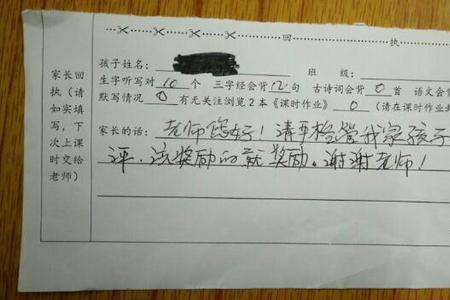 回 执
孩子姓名： 班 级：
生字听写对 10 个 三字经会背 12 句 古诗词会背 0 首 语文会
默写情况 0 有无关注浏览2本《课时作业》 0 （请在课时作业
家长回执（请如实填写，下次上课时交给老师）
家长的话：老师您好！请严检管我家孩子
评.该奖励的就奖励。谢谢老师！